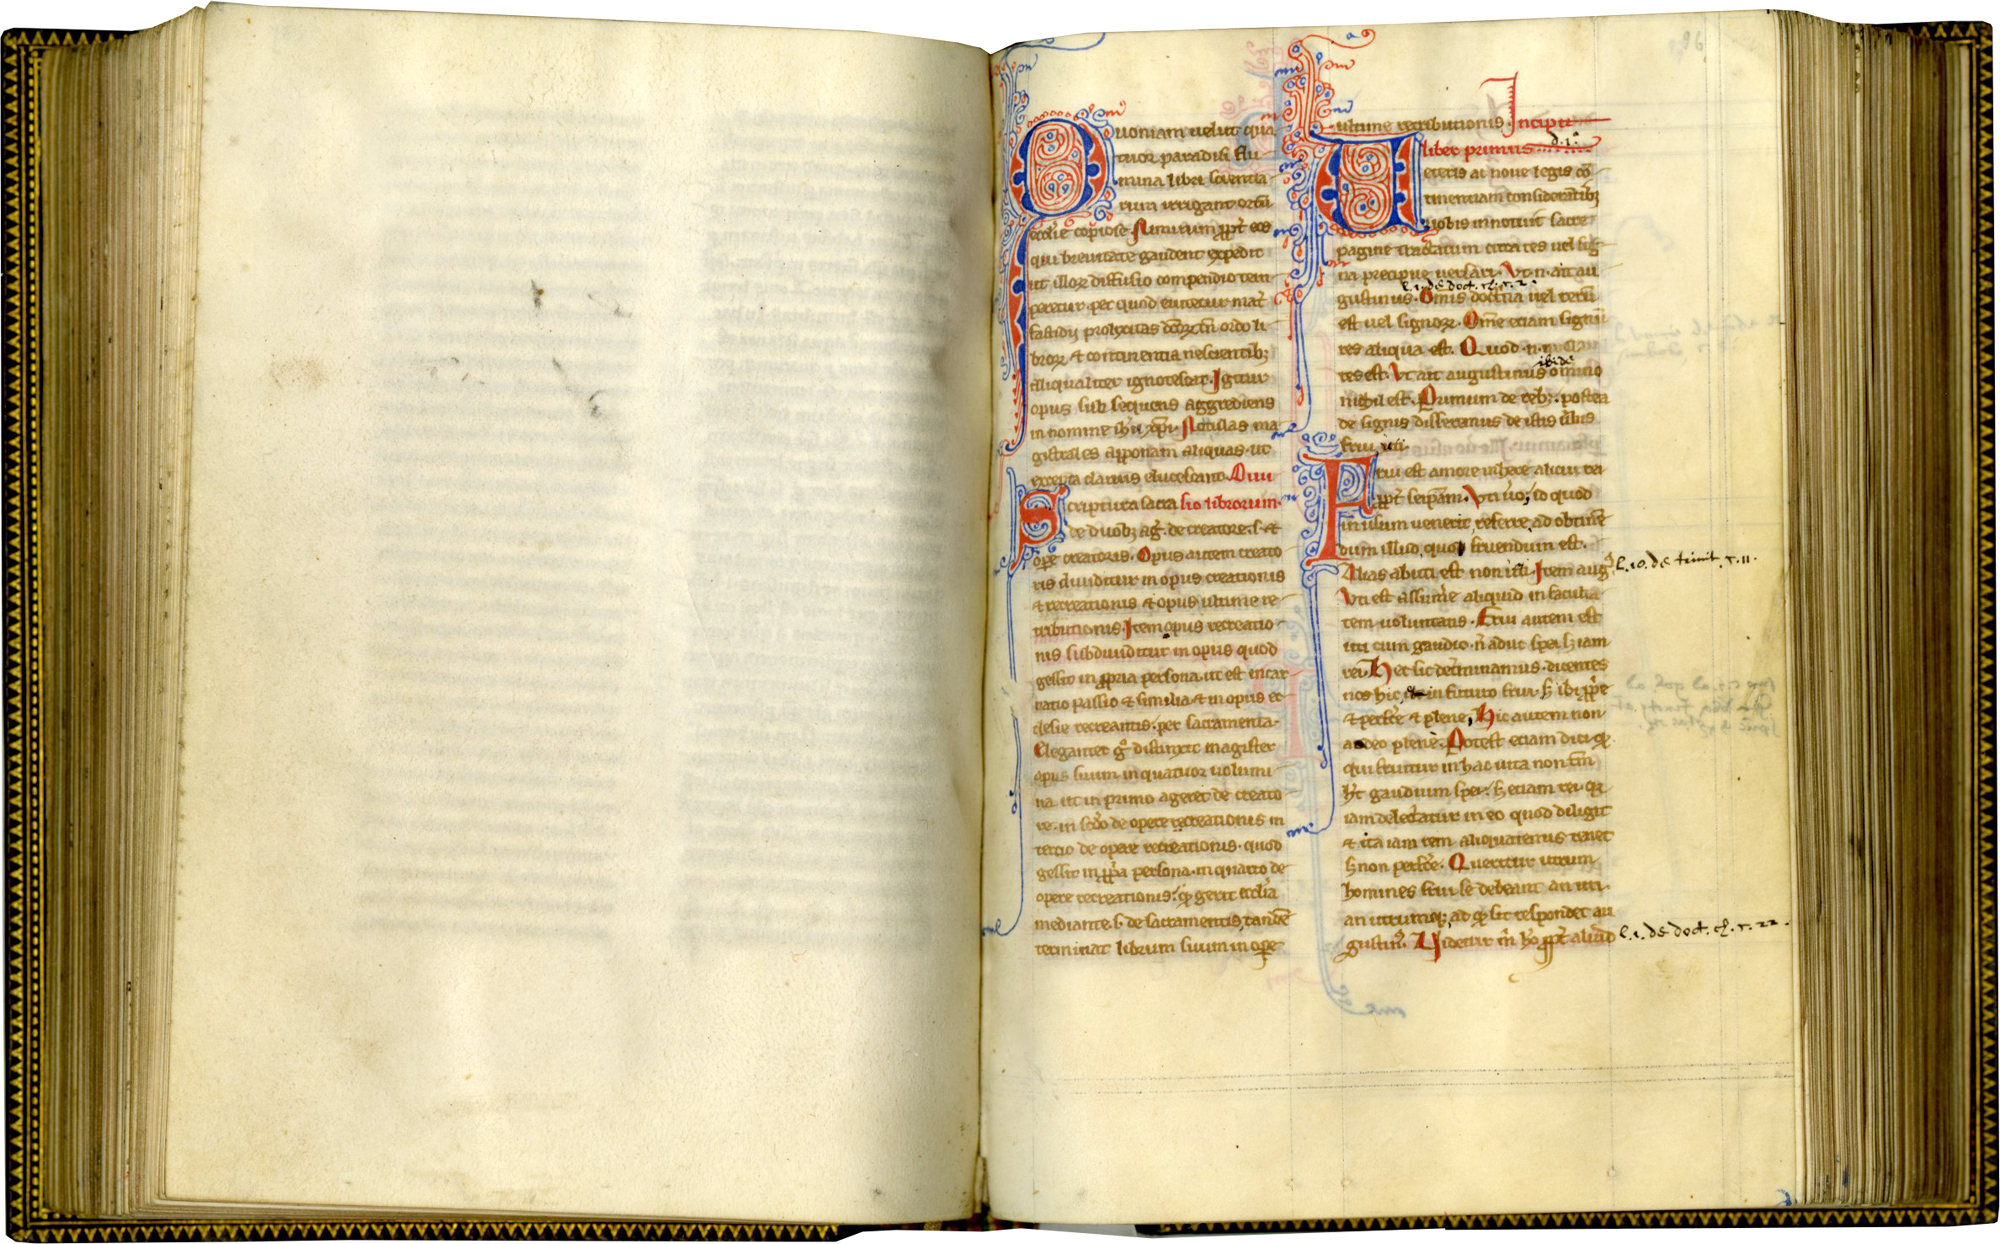 Quoniam uelut qua
tuor paradisi flu
mina libri sententia
rum irrigant ortū
ecclīe copiose. Animum ꝓpt̄ eos
qui breuitate gaudent expedit
ut illoꝝ diffusio compendio tem
peretur per quod euitetur mat̄
fastidii prolixitas ordo li
broꝝ ⁊ continentia nescientibꝫ
aliqualiter ignotescat. Igitur
opus sub sequens aggrediens
in nomine ih̄u xp̄i. Notulas ma
gistrales apponam aliquas. ut
excepta clarius elucescant. Diui
Scriptura sacra sio librorum.
de duobꝫ aḡ. de creatore .s. ⁊
oꝑe creatoris. Opus autem creato
ris diuiditur in opus creationis
⁊ recreationis ⁊ opus ultime re
tributionis. Item opus recreatio
nis subdiuiditur in opus quod
gessit in ꝓpria persona. ut est incar
natio passio ⁊ similia ⁊ in opus ec
clesie recreantis. per sacramenta.
Eleganter gͦ distinxit magister
opus suum in quatuor uolumi
na. ut in primo ageret de creato
re. in sc̄do de opere recreationis in
tercio de opere recreationis. quod
gessit in ꝓp̄a persona. in quarto de
opere recreationis. quod gerit ecclīa
mediante .s. de sacramentis, tandē
terminat librum suum in oꝑe
ultime retributionis. Incipit
liber primus d. 1ª
Ueteris ac noue legis cō
tinentiam considerātibꝫ
nobis innotuit sacre
pagine tractatum circa res uel sig
na precipue uersari. Vt .n. ait au
l. 1. de doct. ch. c. 2.
gustinus. Omīs doctrina uel rerū
est uel signoꝝ. Om̄e etiam signū
res aliqua est. Quod .n.
res est. Vt ait augustinus omnino
ibidē
nichil est. Primum de rebꝫ. postea
de signis disseremus de istis ūbis
frui uti.
Frui est amore inherere alicui rei
ꝓpt̄ seip̄am. Vti ūo, id quod
in usum uenerit referre ad obtinē
dum illud, quo fruendum est.
Alias abuti est non uti. Item augꝰ
l. 10. de trinit. c. 11.
Vti est assumere aliquid in faculta
tem uoluntatis. Frui autem est
uti cum gaudio. n̄ aduc spei s; iam
rei. Hec sic det̄minamus. dicentes
nos hic in futuro frui. s; ibi ꝓp̄e
⁊ perfc̄e ⁊ plene, Hic autem non
adeo plene. Potest etiam dici ꝙ
qui fruitur in hac uita non tm̄
h̄t gaudium spei. s; etiam rei ꝙ
iam delectatur in eo quod diligit
⁊ ita iam rem aliquatenus tenet
s; non perfc̄e. Queritur utrum
homines frui se debeant an uti.
an utrumqꝫ, ad ꝙ sic respondet au
gustinꝰ. Videtur m̄ ho ꝓpt̄ aliud
l. 1. de doct. ch. c. 22.